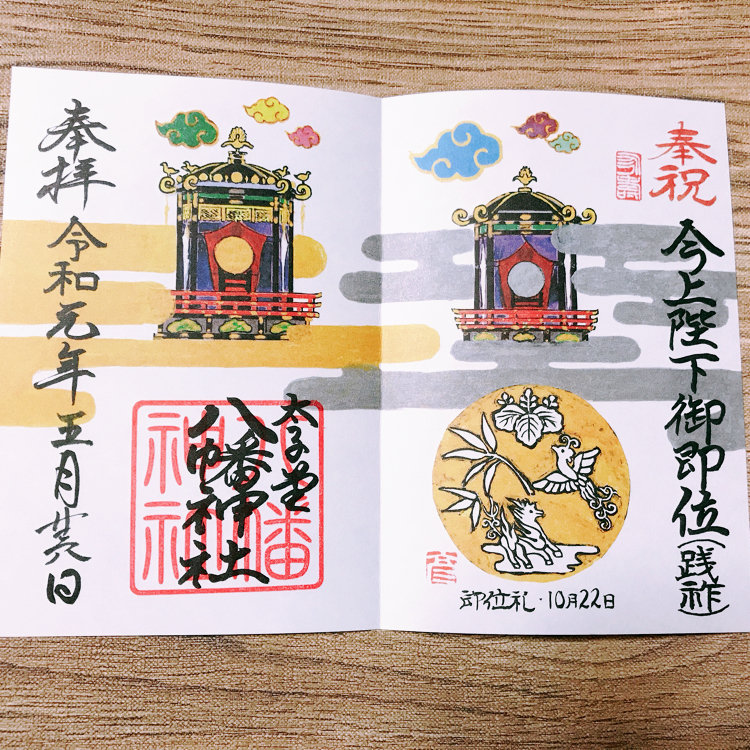 奉祝
今上陛下御即位(践祚)
即位礼・10月22日
奉拝
令和元年五月廿日
太子堂
八幡神社
八幡
神社